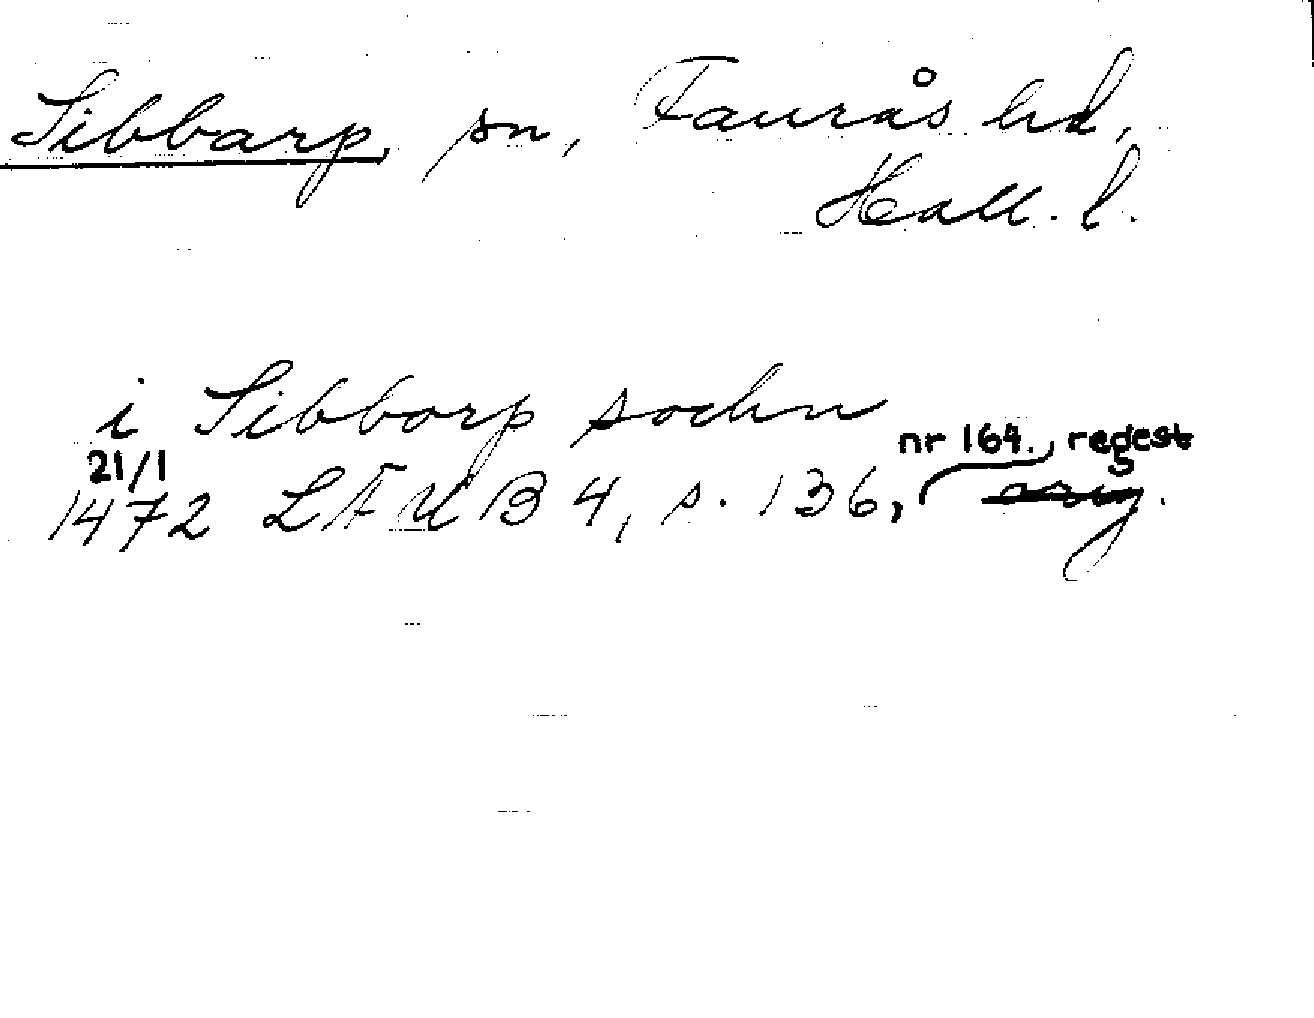 Sibbarp, sn, Faurås hd,
Hall. l.
i Sibborp sochn
21/1
1472 LFUB 4, s. 136, nr 164., regest
orig.